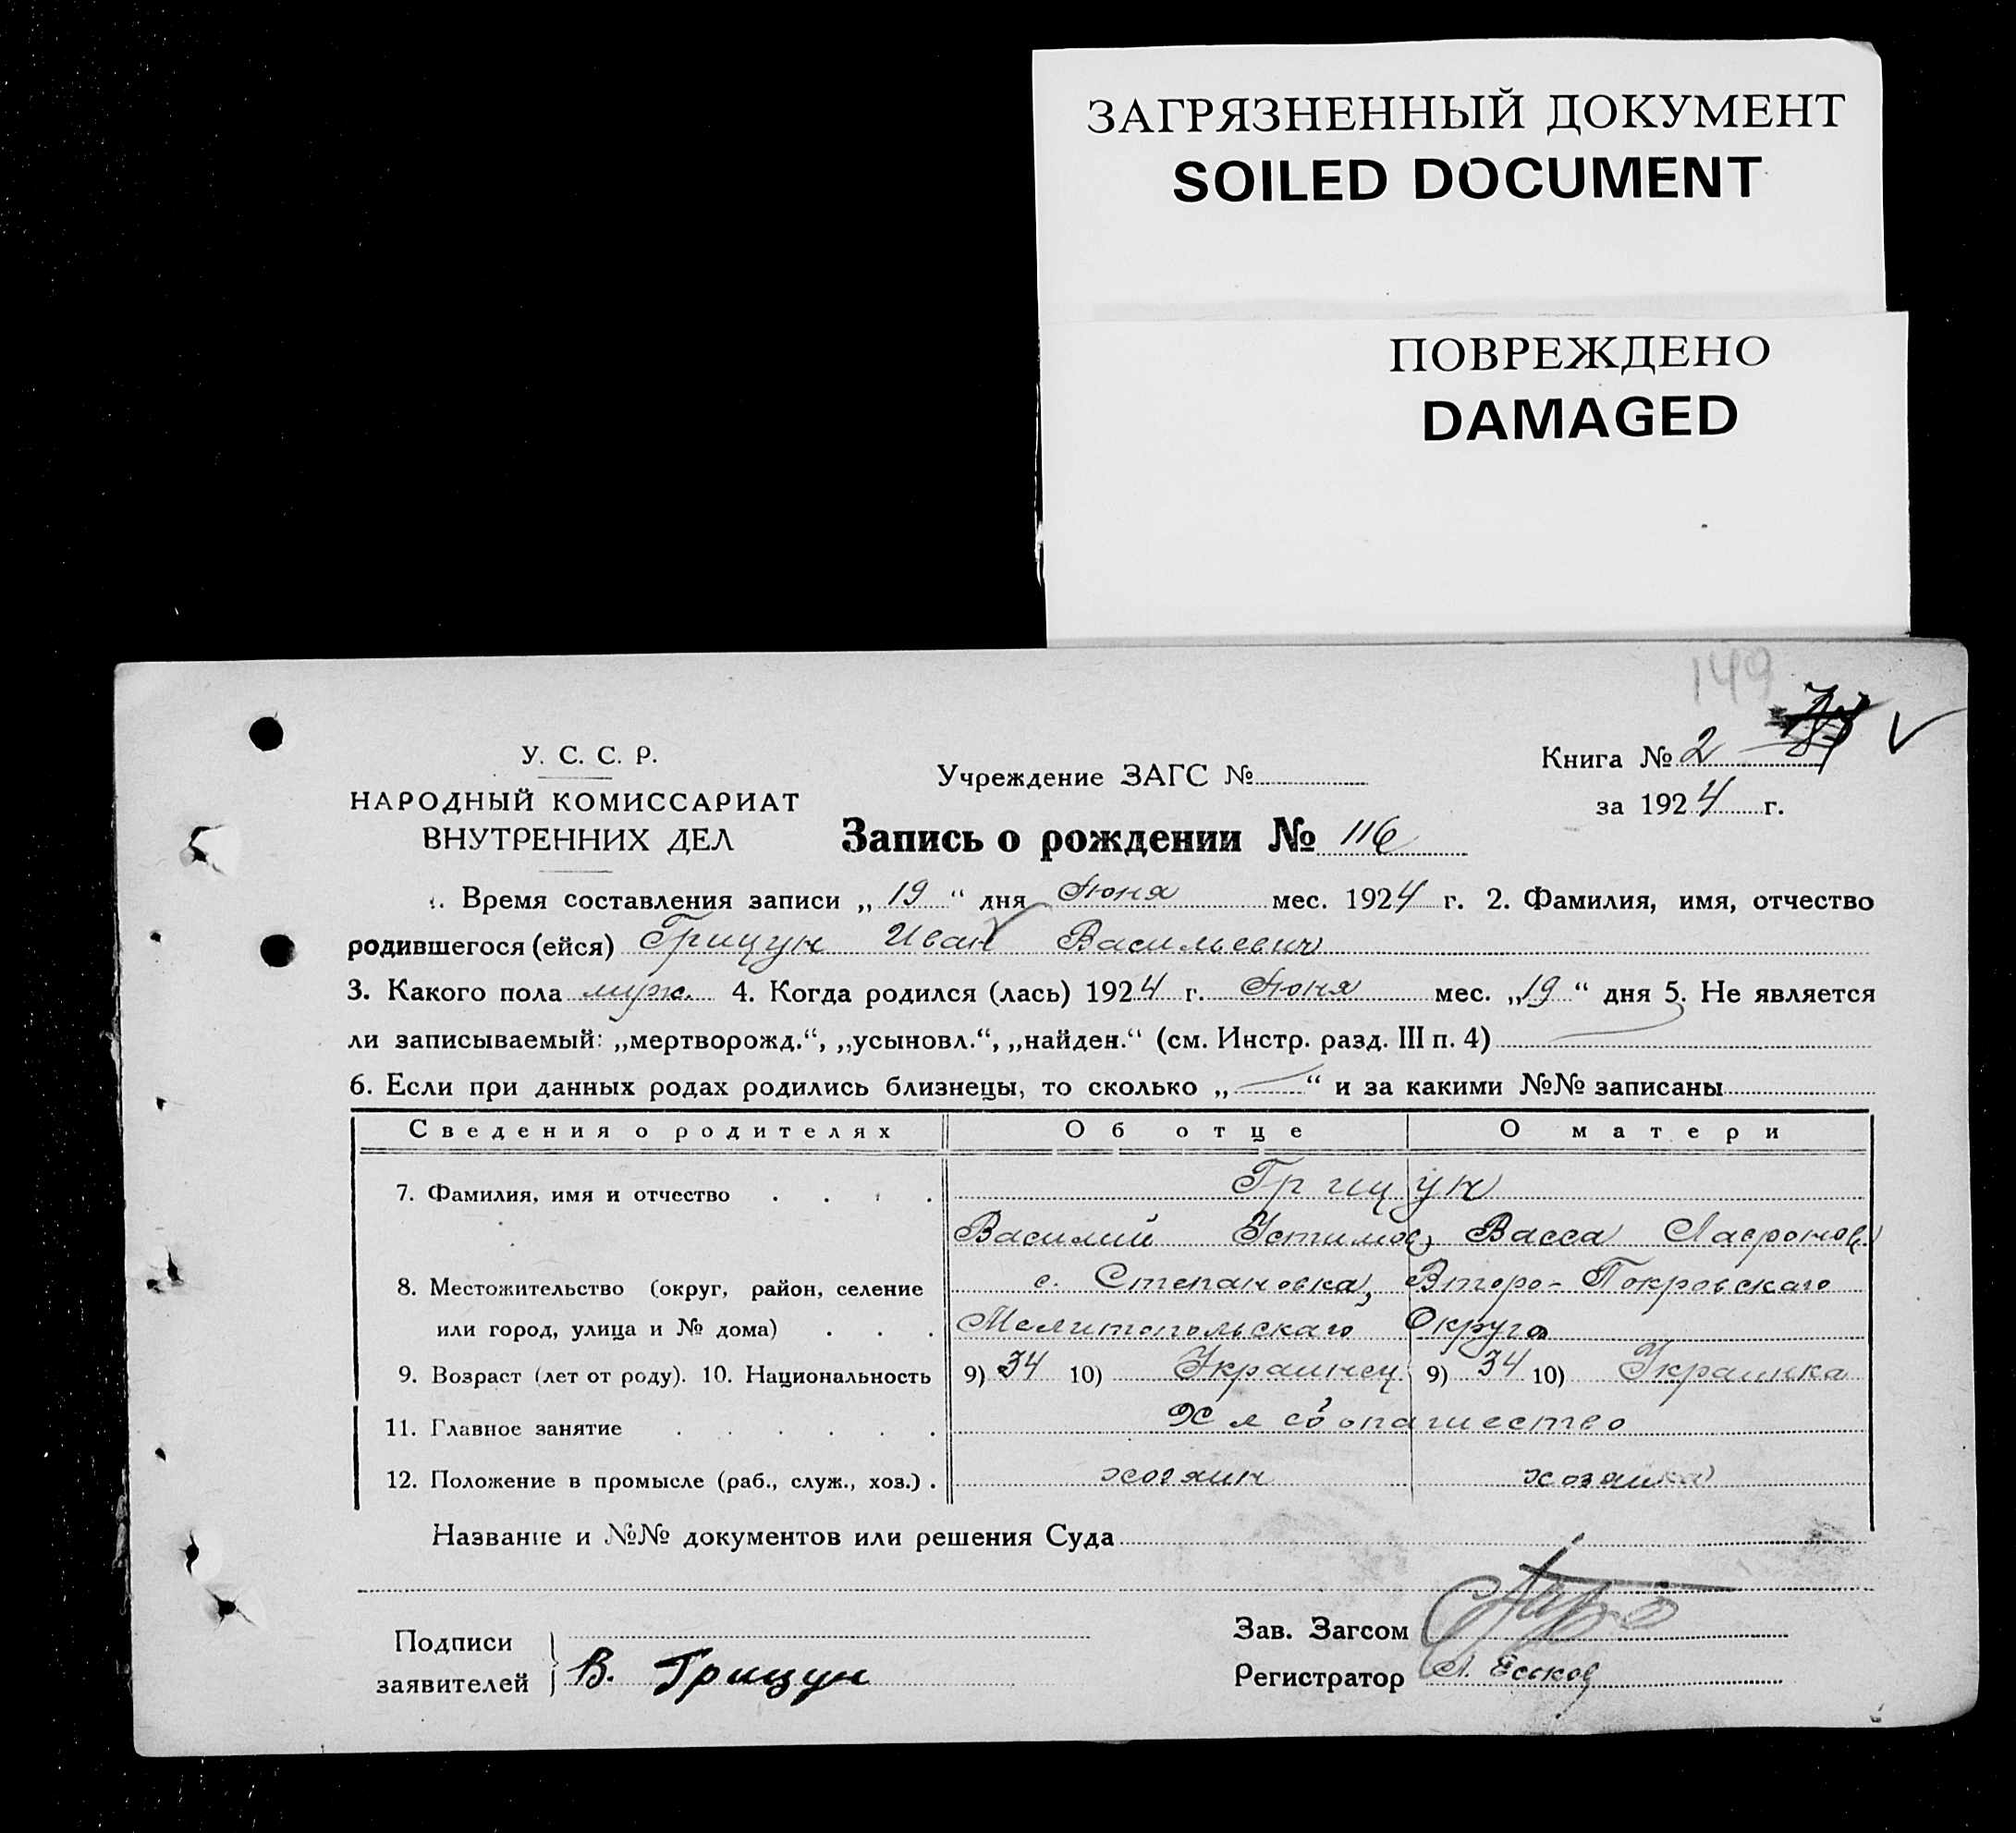 ЗАГРЯЗНЕННЫЙ ДОКУМЕНТ
SOILED DOCUMENT
ПОВРЕЖДЕНО
DAMAGED
149
У. С. С. Р.
НАРОДНЫЙ КОМИССАРИАТ
ВНУТРЕННИХ ДЕЛ
Учреждение ЗАГС №
Книга № 2
за 1924 г.
Запись о рождении № 116
1. Время составления записи „ 19 “ дня Июня мес. 1924 г. 2. Фамилия, имя, отчество
родившегося (ейся) Грицун Иван Васильевич
3. Какого пола муж. 4. Когда родился (лась) 1924 г. Июня мес. „19“ дня 5. Не является
ли записываемый: „мертворожд.“, „усыновл.“, „найден.“ (см. Инстр. разд. III п. 4)
6. Если при данных родах родились близнецы, то сколько „ — “ и за какими №№ записаны
Сведения о родителях Об отце О матери
7. Фамилия, имя и отчество . . . . Грицун
Василий Устимов, Васса Лавронов.
8. Местожительство (округ, район, селение с. Степановка, Второ-Покровскаго
или город, улица и № дома) . . . Мелитопольскаго Округа
9. Возраст (лет от роду). 10. Национальность 9) 34 10) Украинец 9) 34 10) Украинка
11. Главное занятие . . . . . . Хлебопашество
12. Положение в промысле (раб., служ., хоз.) . хозяин хозяйка
Название и №№ документов или решения Суда
Подписи
заявителей
В. Грицун
Зав. Загсом
Регистратор Л. Еськов